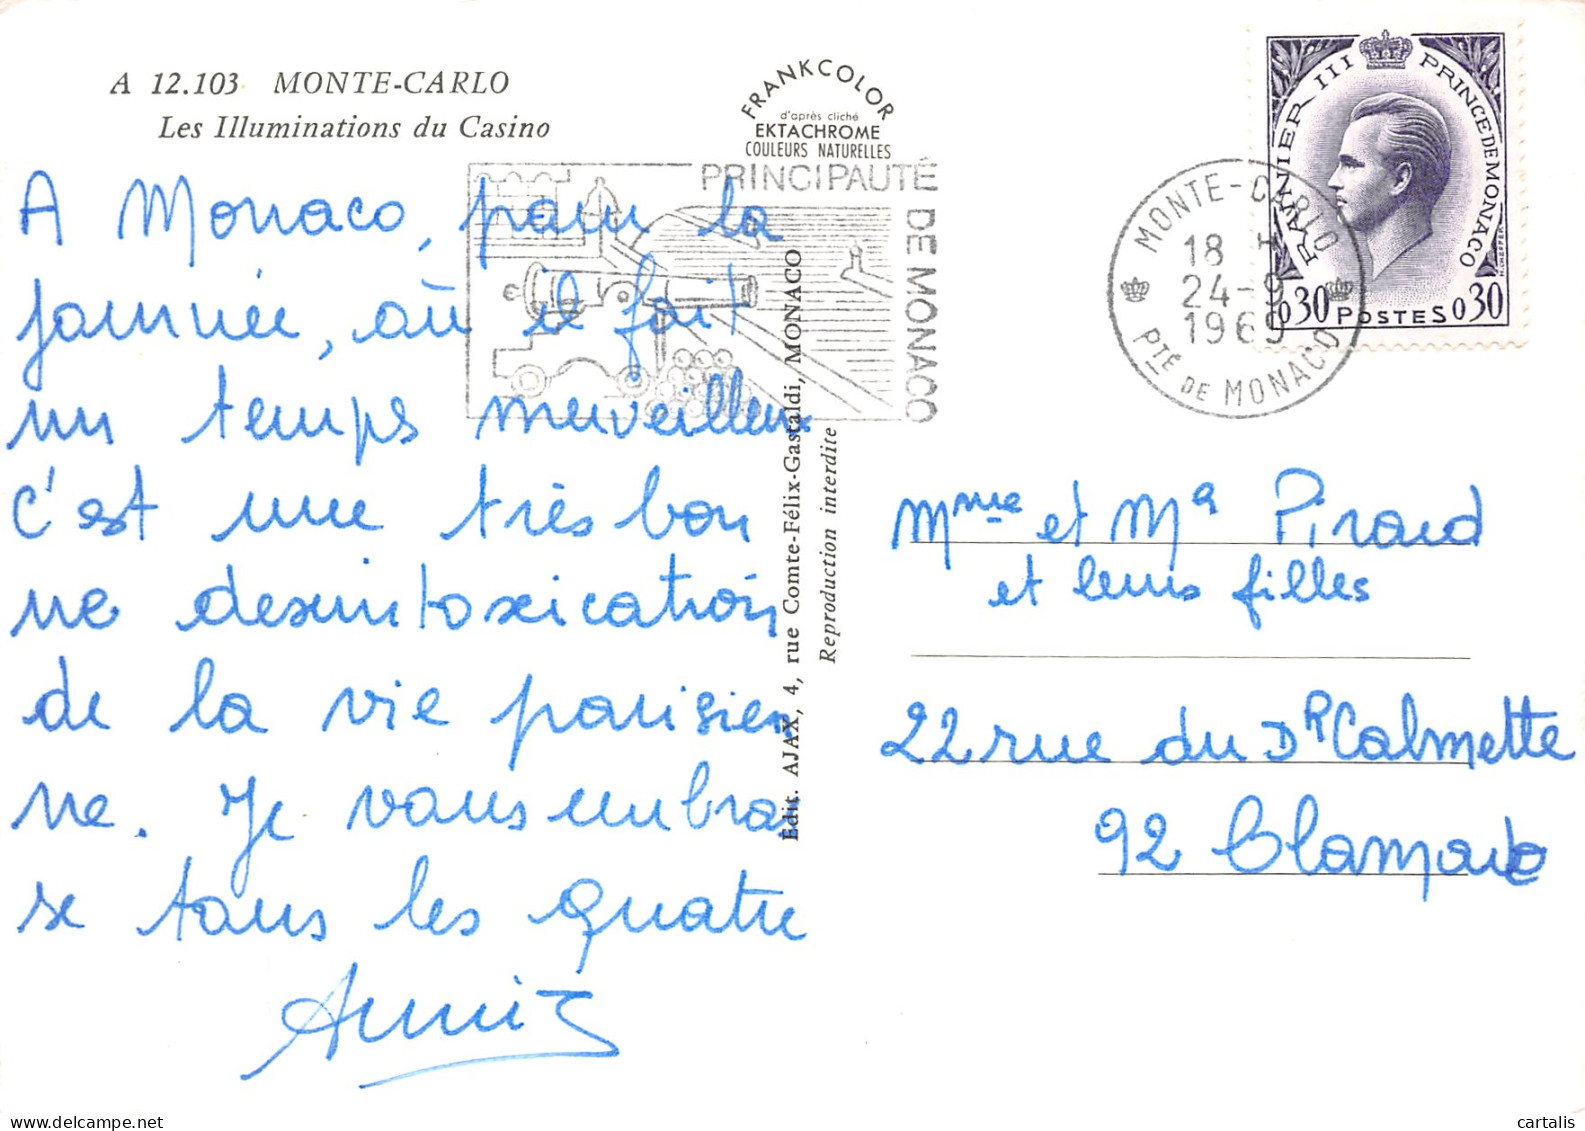 A 12.103 MONTE-CARLO
Les Illuminations du Casino
FRANKCOLOR
d'après cliché
EKTACHROME
COULEURS NATURELLES
PRINCIPAUTÉ
DE MONACO
RAINIER III PRINCE DE MONACO
0,30 POSTES 0,30
MONTE-CARLO
18 H
24-9
1969
PTÉ DE MONACO
A Monaco, pour la
journée, où il fait
un temps merveilleux
c'est une très bon
ne desintoxication
de la vie parisien
ne. Je vous embras
se tous les quatre
Annie
Edit. AJAX, 4, rue Comte-Félix-Gastaldi, MONACO
Reproduction interdite
Mme et Mr Piraud
et leurs filles
22 rue du Dr Calmette
92 Clamart
delcampe.net
cartalis